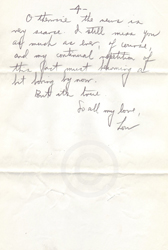 -4-
Otherwise the news is
my scarce. I still miss you
as much as ever, of course,
and my continual repetition of
this fact must becoming a
bit boring by now.
But it's true
So all my love,
Lou